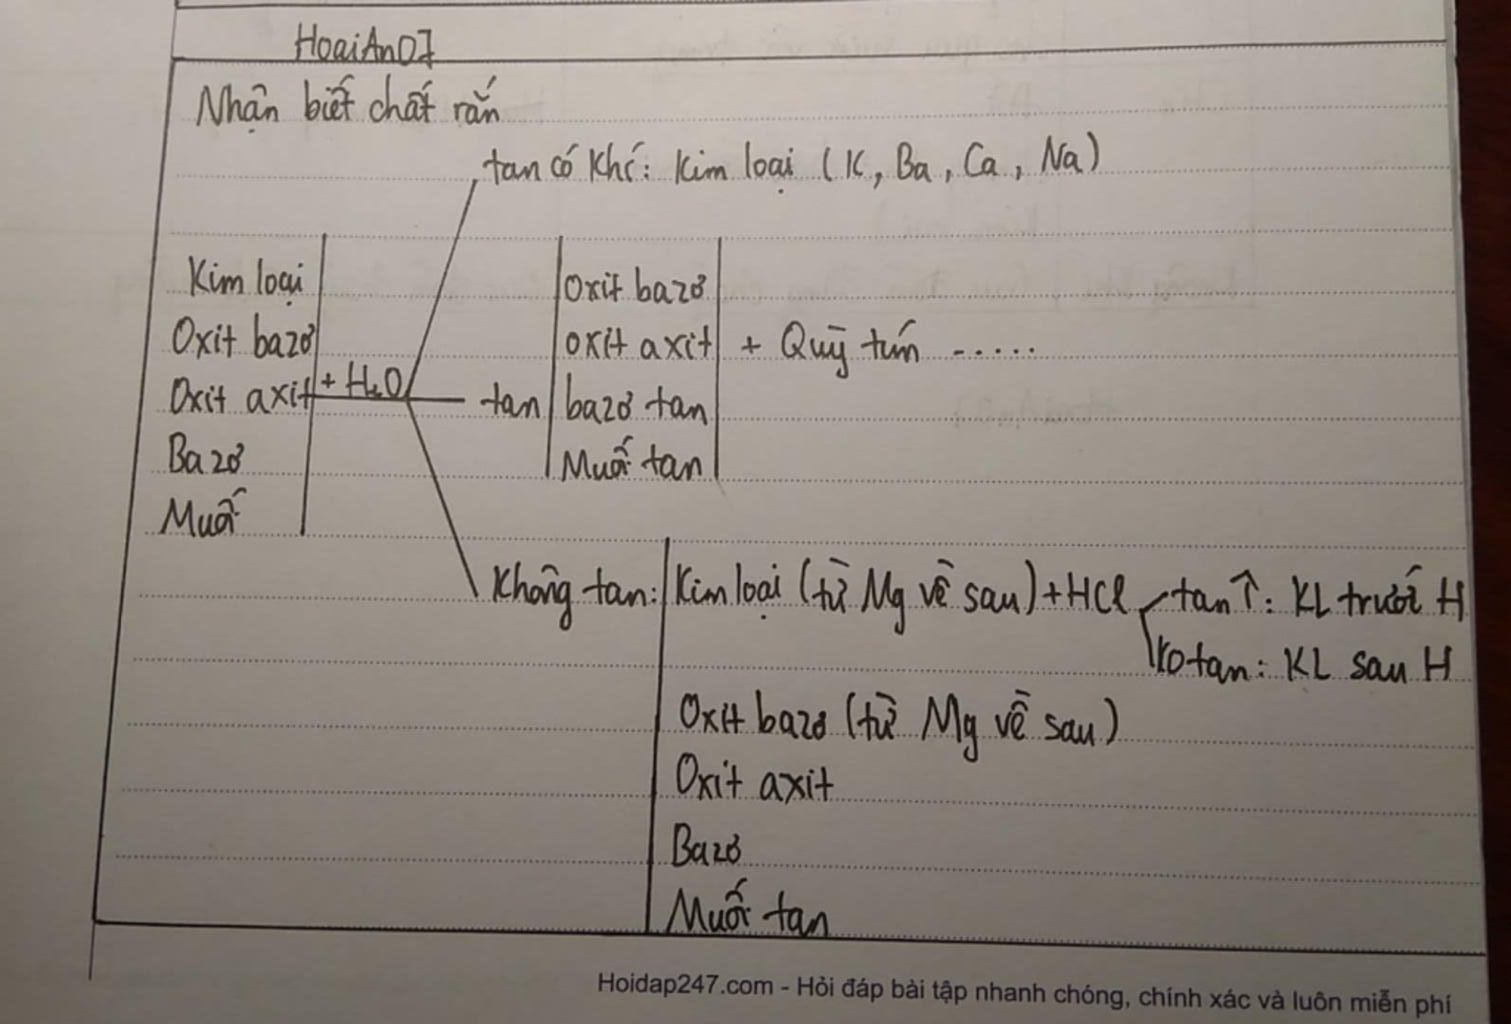 HoaiAn07
Nhận biết chất rắn
tan có khí: Kim loại (K, Ba, Ca, Na)
Kim loại
Oxit bazơ
Oxit axit
Bazơ
Muối
+ H₂O
tan
Oxit bazơ
oxit axit
bazơ tan
Muối tan
+ Quỳ tím .....
Không tan:
Kim loại (từ Mg về sau) + HCl
tan ↑: KL trước H
Ko tan: KL sau H
Oxit bazơ (từ Mg về sau)
Oxit axit
Bazơ
Muối tan
Hoidap247.com - Hỏi đáp bài tập nhanh chóng, chính xác và luôn miễn phí